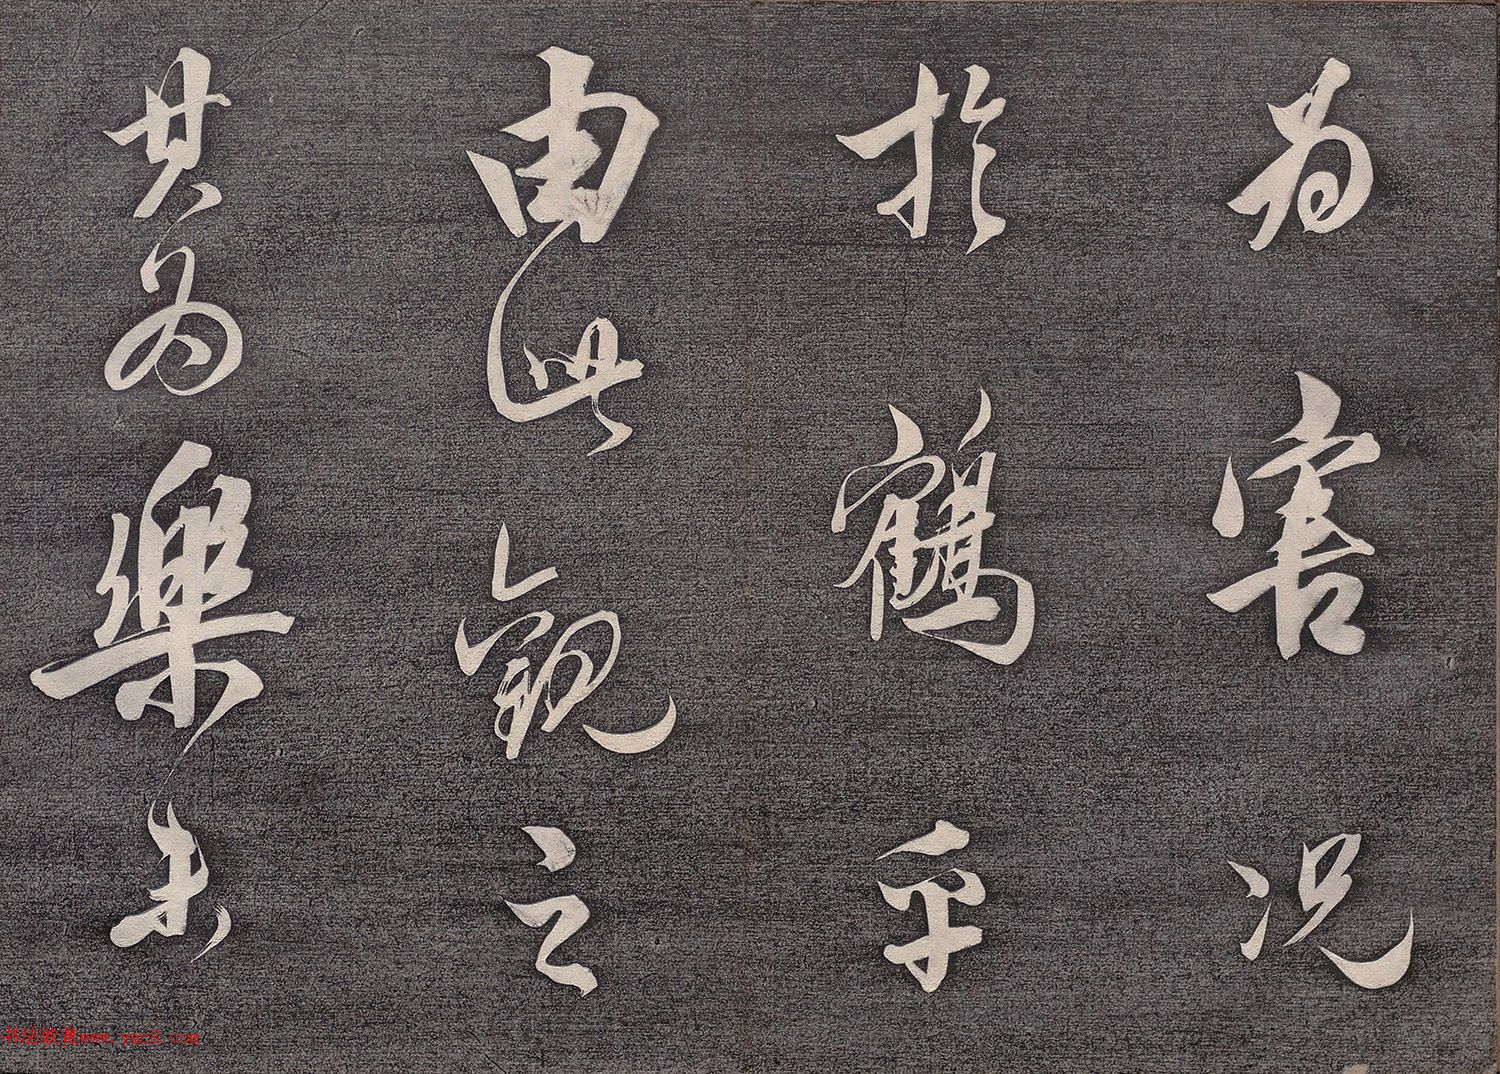 為害況
於鶴乎
由此觀之
其為樂未
书法欣赏www.yac8.com